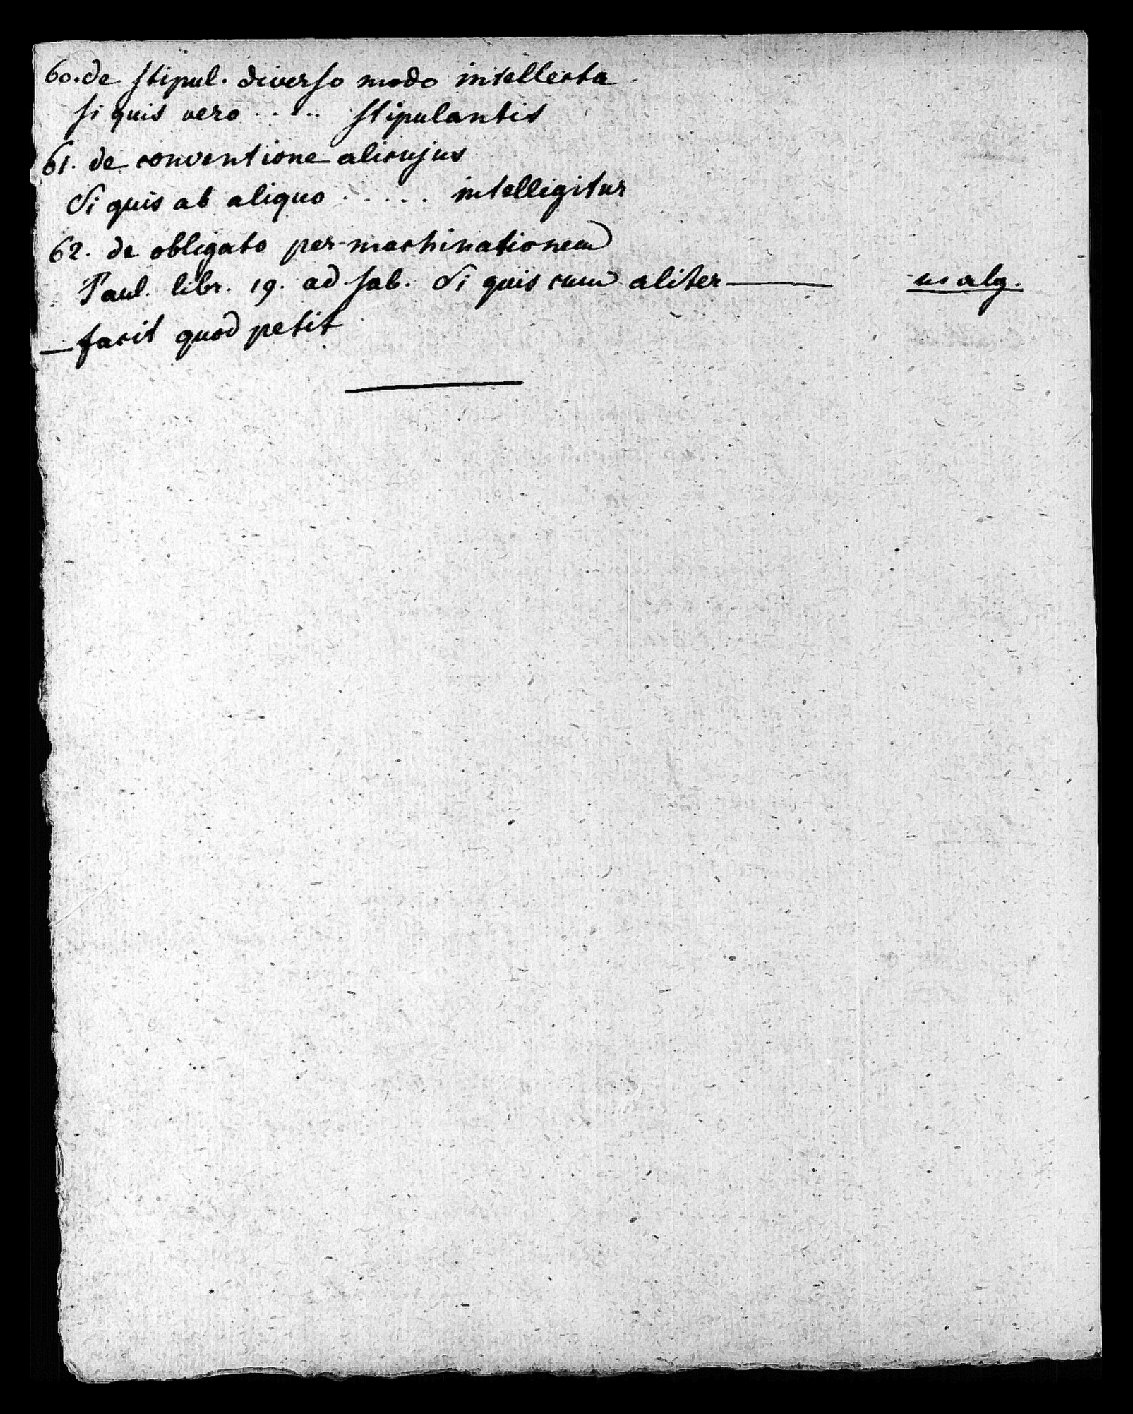 60. de stipul. diverso modo intellecta
si quis vero ..... stipulantis
61. de conventione alicujus
Si quis ab aliquo ..... intelligitur
62. de obligato per machinationem
Paul. libr. 19. ad sab. Si quis cum aliter —— ut alg.
— facit quod petit